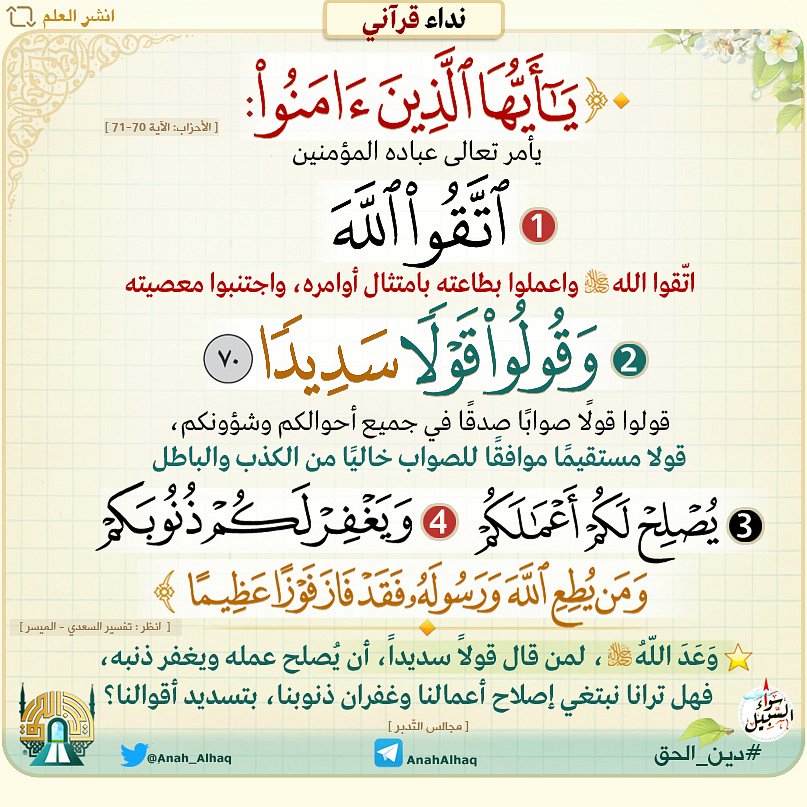 انشر العلم
نداء قرآني
﴿ يَـٰٓأَيُّهَا ٱلَّذِينَ ءَامَنُوا۟:
[ الأحزاب: الآية 70-71 ]
يأمر تعالى عباده المؤمنين
1 ٱتَّقُوا۟ ٱللَّهَ
اتّقوا الله ﷻ واعملوا بطاعته بامتثال أوامره، واجتنبوا معصيته
2 وَقُولُوا۟ قَوْلًا سَدِيدًا ٧٠
قولوا قولًا صوابًا صدقًا في جميع أحوالكم وشؤونكم،
قولا مستقيمًا موافقًا للصواب خاليًا من الكذب والباطل
3 يُصْلِحْ لَكُمْ أَعْمَـٰلَكُمْ 4 وَيَغْفِرْ لَكُمْ ذُنُوبَكُمْ
وَمَن يُطِعِ ٱللَّهَ وَرَسُولَهُۥ فَقَدْ فَازَ فَوْزًا عَظِيمًا ﴾
[ انظر: تفسير السعدي - الميسر ]
وَعَدَ اللّهُ ﷻ ، لمن قال قولاً سديداً، أن يُصلح عمله ويغفر ذنبه،
فهل ترانا نبتغي إصلاح أعمالنا وغفران ذنوبنا، بتسديد أقوالنا؟
[ مجالس التّدبر ]
سَوَاء السَّبِيل
#دين_الحق
AnahAlhaq
@Anah_Alhaq